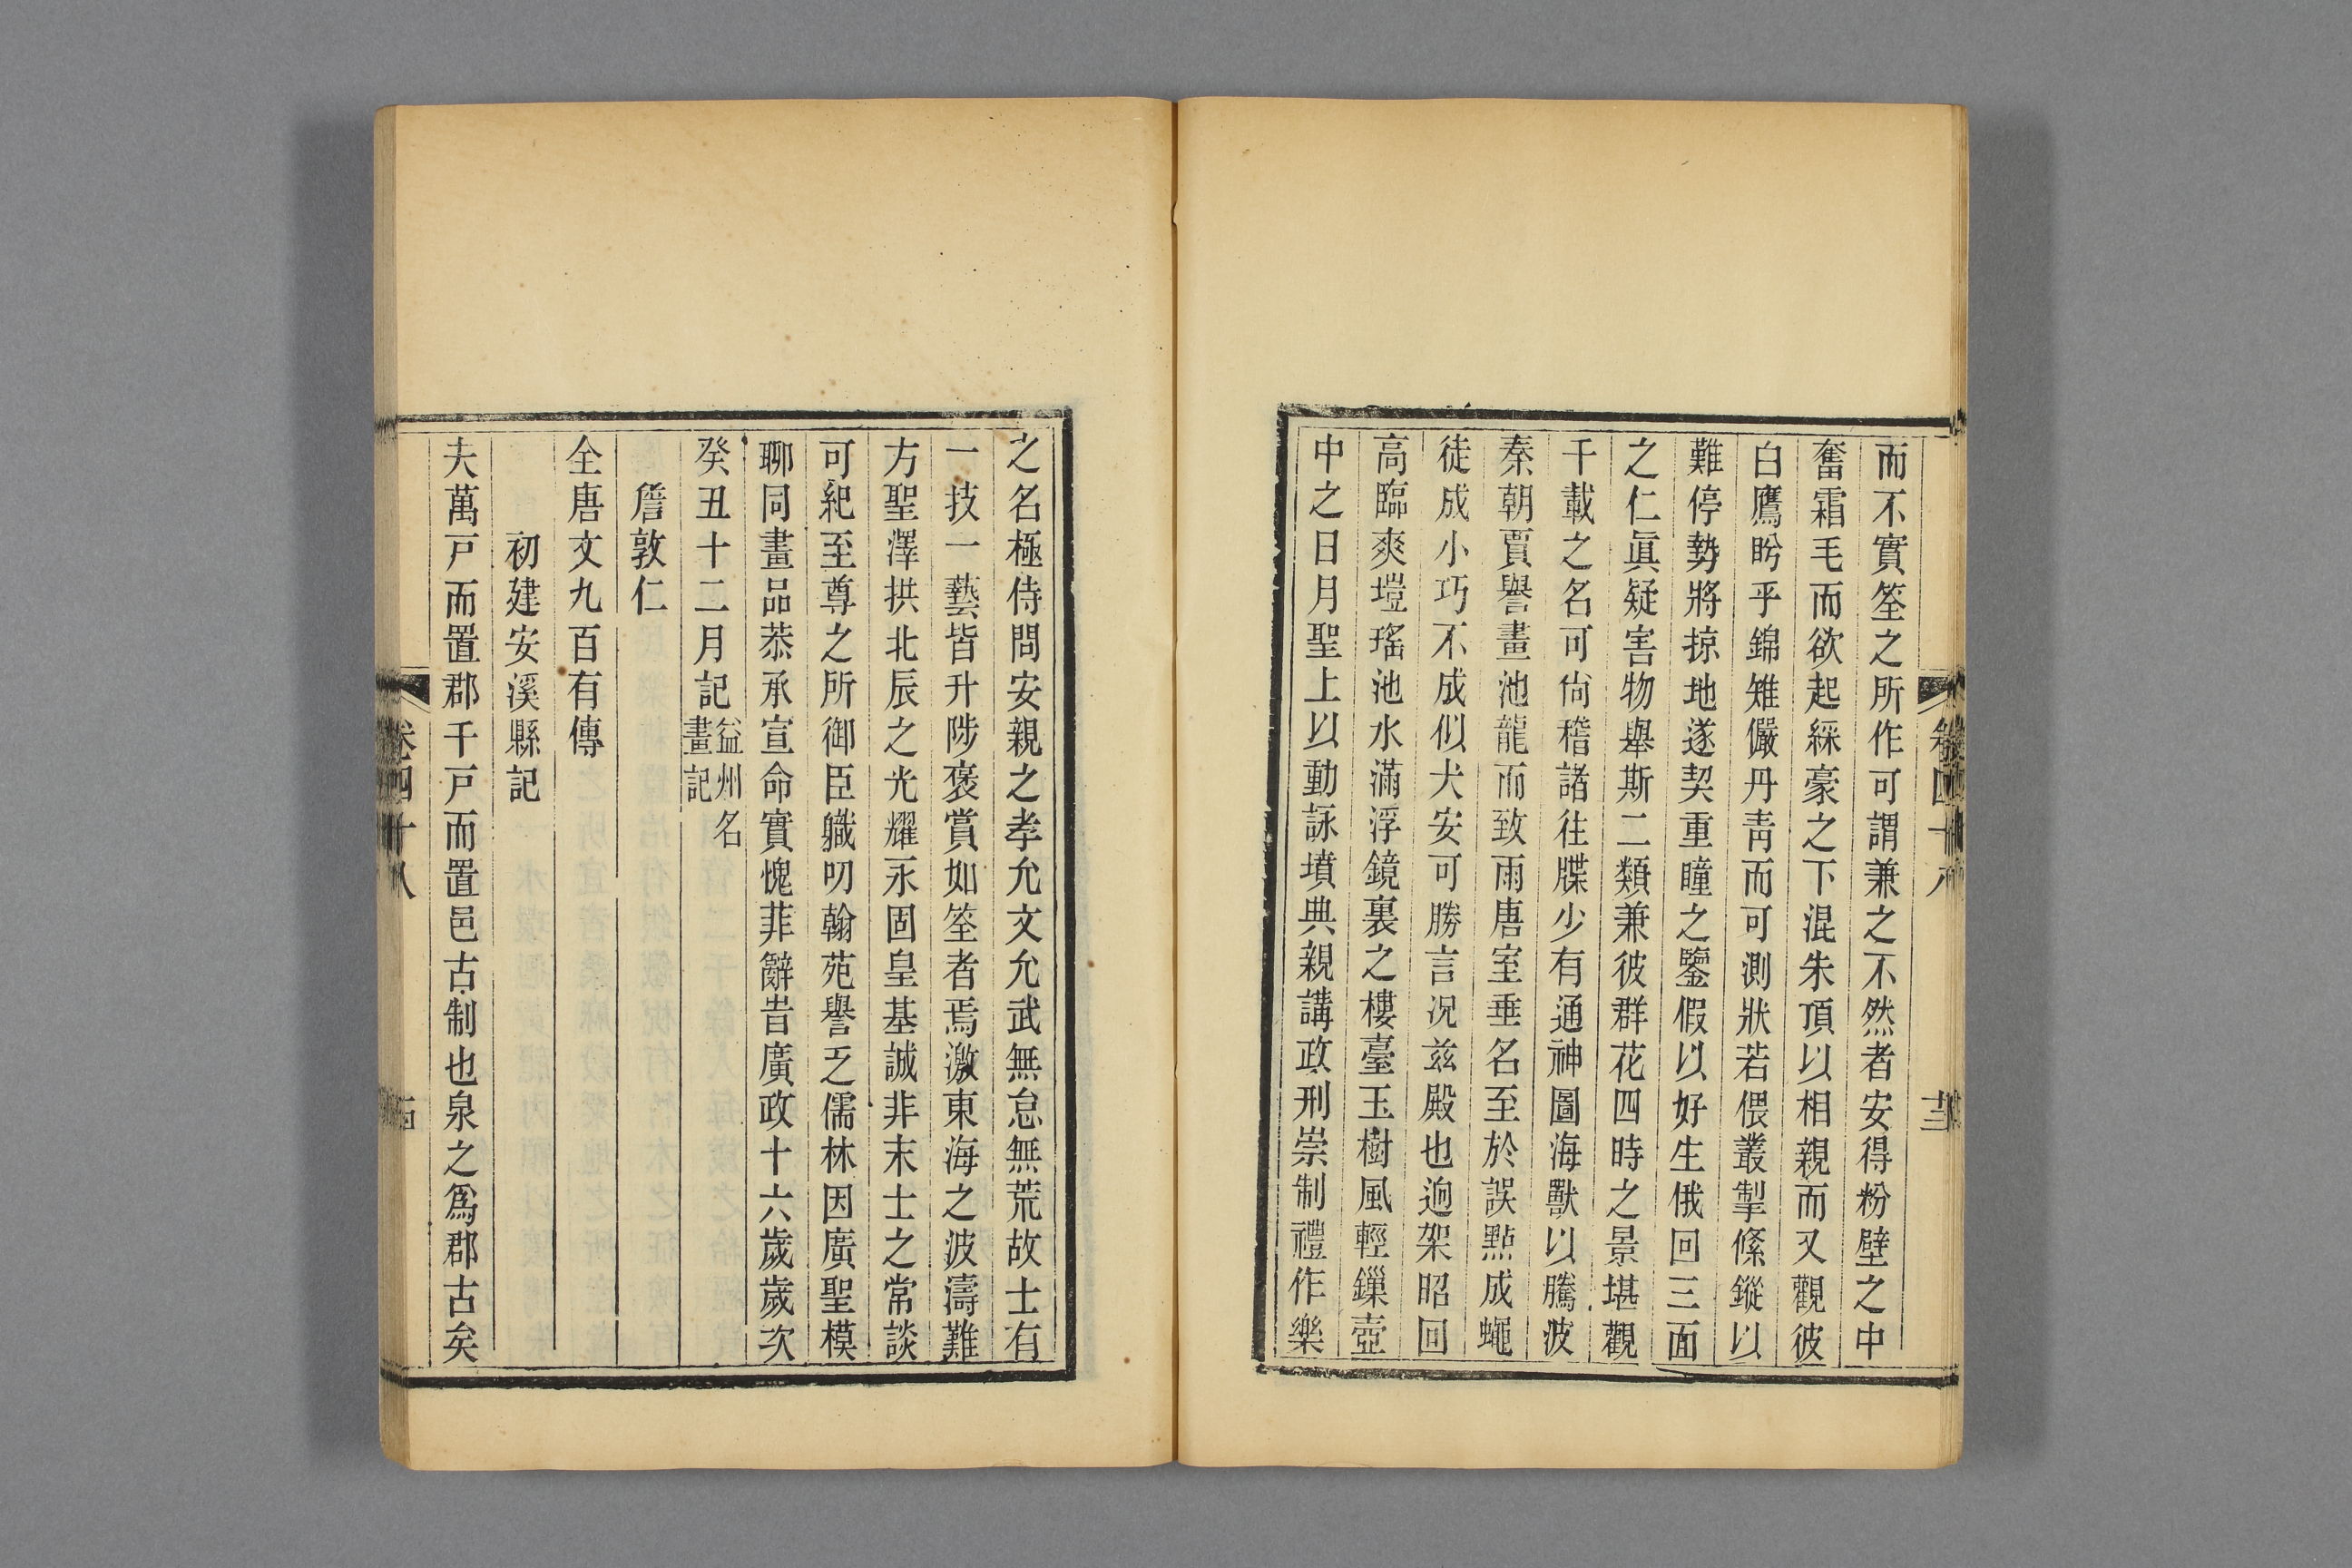 卷四十八
十三
而不實筌之所作可謂兼之不然者安得粉壁之中
奮霜毛而欲起綵豪之下混朱頂以相親而又觀彼
白鷹盻乎錦雉儼丹靑而可測狀若偎叢掣絛鏦以
難停勢將掠地遂契重瞳之鑒假以好生俄回三面
之仁眞疑害物舉斯二類兼彼群花四時之景堪觀
千載之名可尙稽諸往牒少有通神圖海獸以騰波
秦朝賈譽畫池龍而致雨唐室垂名至於誤點成蠅
徒成小巧不成似犬安可勝言況兹殿也逈架昭回
高臨爽塏瑤池水滿浮鏡裏之樓臺玉樹風輕鏁壺
中之日月聖上以動詠墳典親講政刑崇制禮作樂
之名極侍問安親之孝允文允武無怠無荒故士有
一技一藝皆升陟褒賞如筌者焉激東海之波濤難
方聖澤拱北辰之光耀永固皇基誠非末士之常談
可紀至尊之所御臣職叨翰苑譽乏儒林因廣聖模
聊同畫品恭承宣命實愧菲辭旹廣政十六歲歲次
癸丑十二月記益州名
畫記
詹敦仁
全唐文九百有傳
初建安溪縣記
夫萬戸而置郡千戸而置邑古制也泉之爲郡古矣
卷四十八
十四